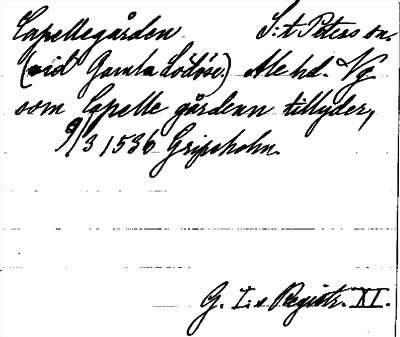 Capellegården S:t Peters sn.
(vid Gamla Lödöse.) Ale hd. Vg
som Capelle gårdenn tillyder,
9/3 1536 Gripsholm.
G. I:s Registr. XI.